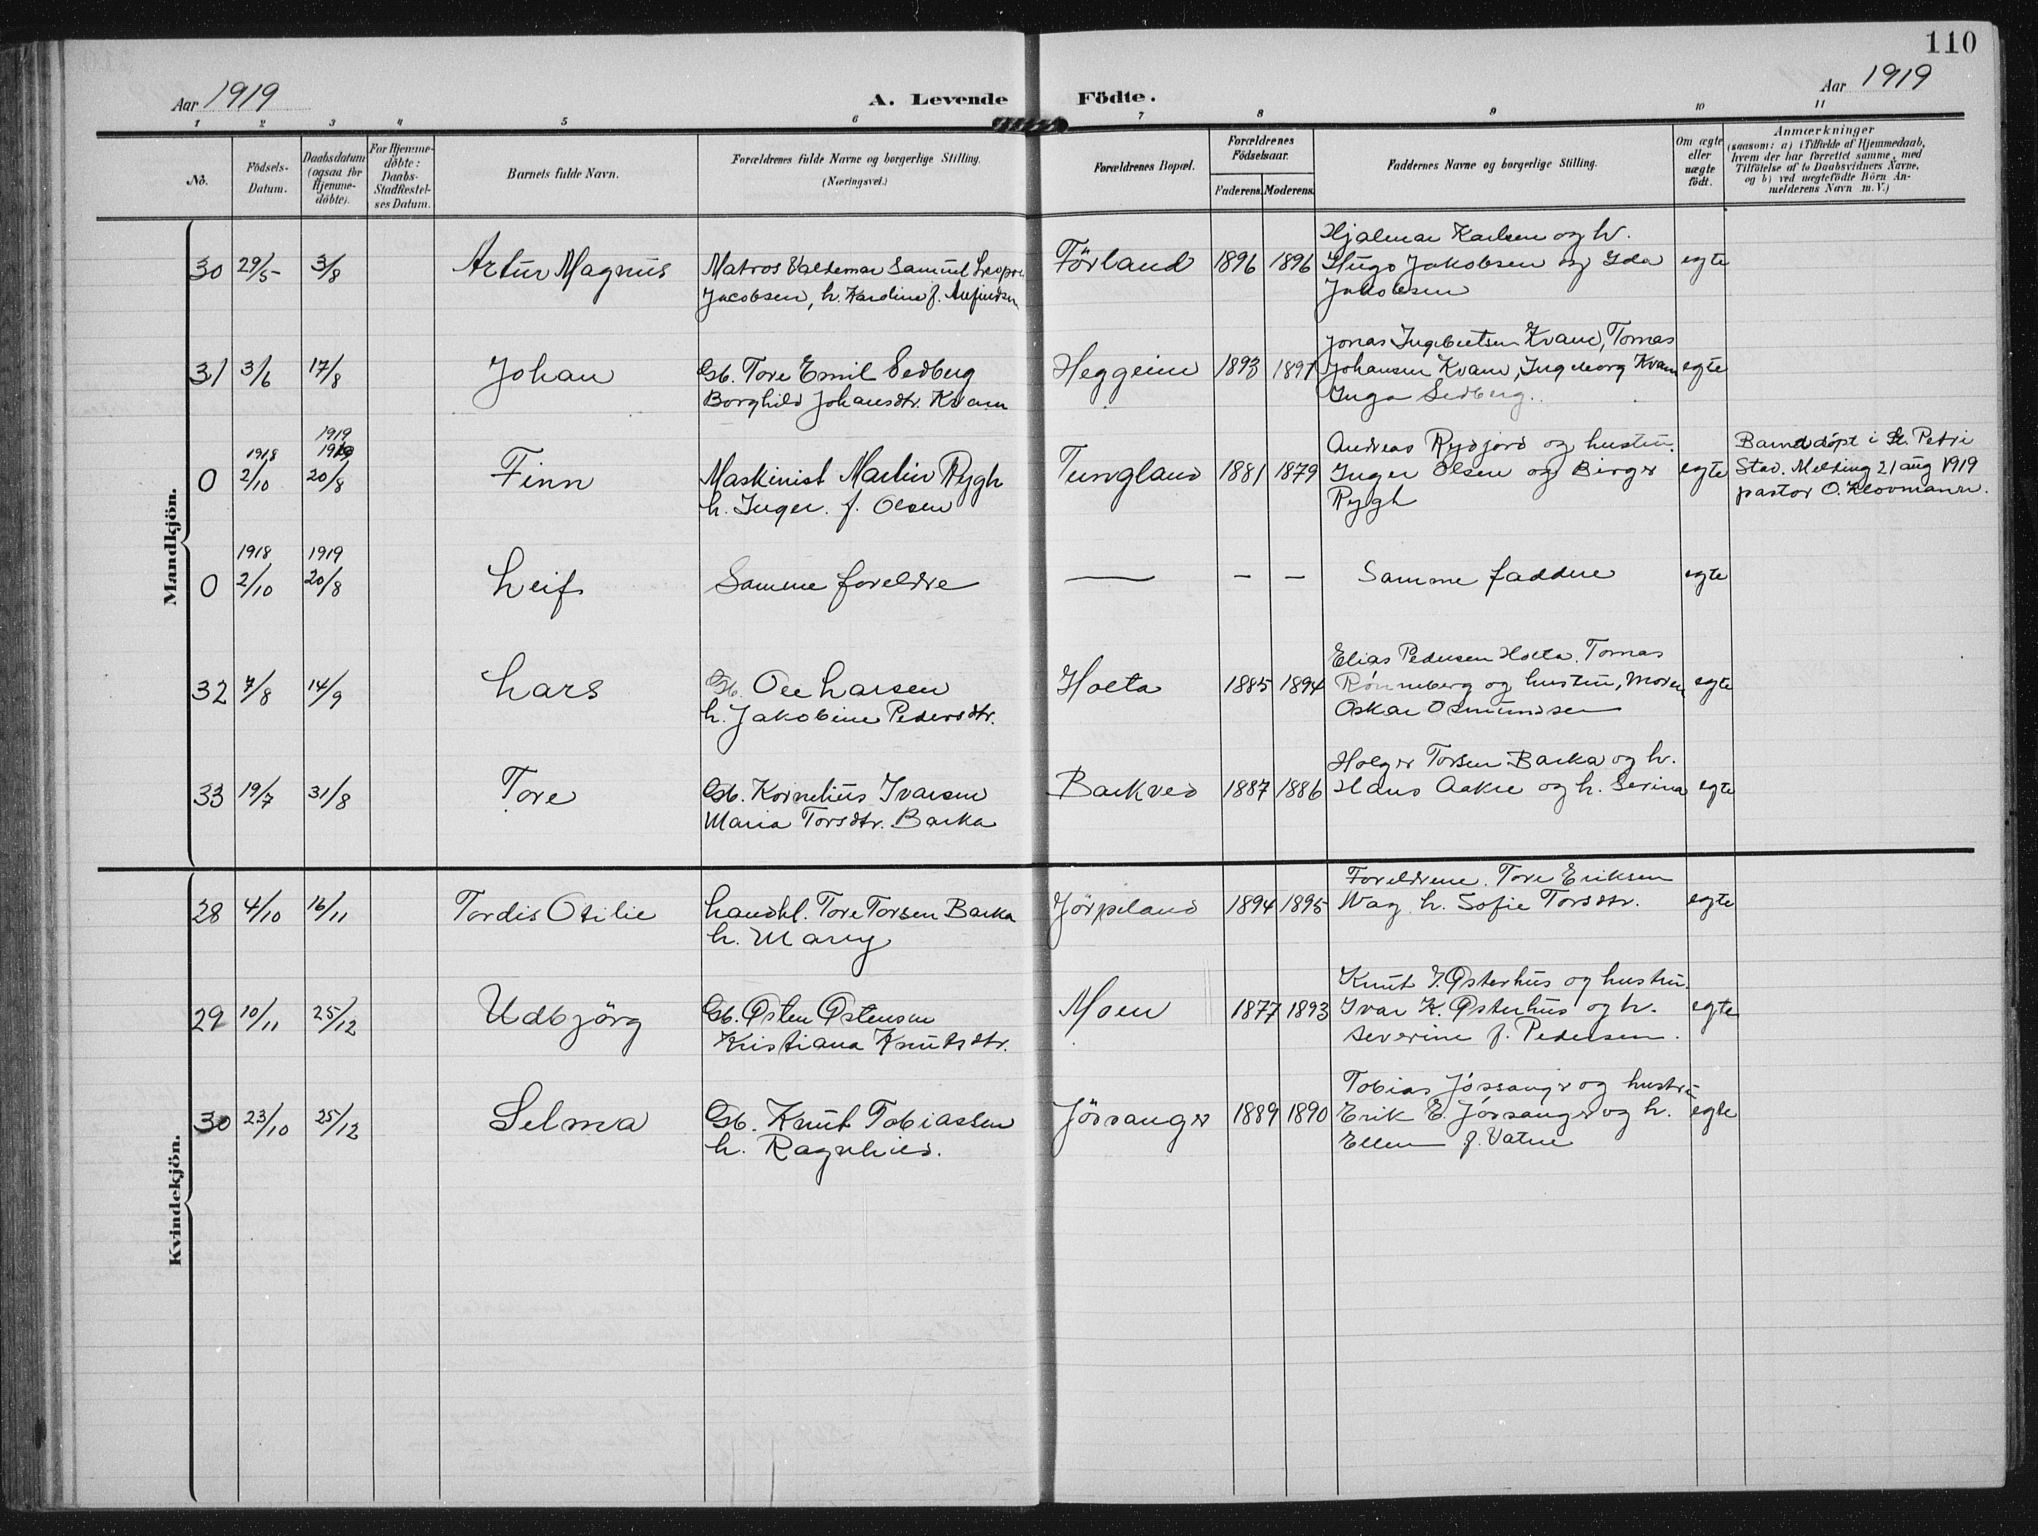 110
Aar 1919
A. Levende Födte.
Aar 1919
1 2 3 4 5 6 7 8 9 10 11
No.
Födsels-
Datum.
Daabsdatum
(ogsaa for
Hjemme-
døbte).
For Hjemme-
døbte:
Daabs-
Stadfæstel-
ses Datum.
Barnets fulde Navn.
Forældrenes fulde Navne og borgerlige Stilling.
(Næringsvei.)
Forældrenes Bopæl.
Forældrenes
Födselsaar.
Faderens. Moderens.
Faddernes Navne og borgerlige Stilling.
Om ægte
eller
uægte
födt.
Anmærkninger
(saasom: a) i Tilfælde af Hjemmedaab,
hvem der har forrettet samme, med
Tilföielse af to Daabsvidners Navne,
og b) ved uægtefödte Börn An-
melderens Navn m. V.)
Mandkjön.
30 29/5 3/8 Artur Magnus
Matros Valdemar Samuel
Jacobsen, h. Karoline f.
Förland 1896 1896
Hjalmar Karlsen og h.
Hugo Jakobsen og Ida
Jakobsen
egte
31 3/6 17/8 Johan
Gb. Tore Emil Sedberg
Borghild Johansdtr. Kvam
Heggeim 1893 1891
Jonas Ingebretsen Kvam, Tomas
Johansen Kvam, Ingeborg Kvam
Inga Sedberg.
egte
0 1918 2/10 1919 20/8 Finn
Maskinist Martin Rygh
h. Inger. f. Olsen
Tungland 1881 1879
Andreas Rydjord og hustru.
Inger Olsen og Birger
Rygh
egte
Barnet döpt i St. Petri
Stav. Melding 21 aug 1919
pastor O. Klovmann.
0 1918 2/10 1919 20/8 Leif
Samme foreldre
— — —
Samme faddere
egte
32 7/8 14/9 Lars
Gb. Ole Larsen
h. Jakobine Pedersdtr.
Holta 1885 1894
Elias Pedersen Holta. Tomas
Rönneberg og hustru,
Oskar Osmundsen
egte
33 19/7 31/8 Tore
Gb. Kornelius Ivarsen
Maria Torsdtr. Barka
Barkved 1887 1886
Holger Torsen Barka og h.
Hans Aakre og h. Serina
egte
Kvindekjön.
28 4/10 16/11 Tordis Otilie
Landhl. Tore Torsen Barka
h. Mary
Jörpeland 1894 1895
Foreldrene. Tore Eriksen
Wag h. Sofie Torsdtr.
egte
29 10/11 25/12 Udbjörg
Gb. Østen Østensen
Kristiana Knutsdtr.
Moen 1877 1893
Knut I. Østerhus og hustru.
Ivar K. Østerhus og h.
Severine f. Pedersen.
egte
30 23/10 25/12 Selma
Gb. Knut Tobiassen
h. Ragnhild.
Jössanger 1889 1890
Tobias Jössanger og hustru
Erik E. Jössanger og h.
Ellen f. Vatne
egte